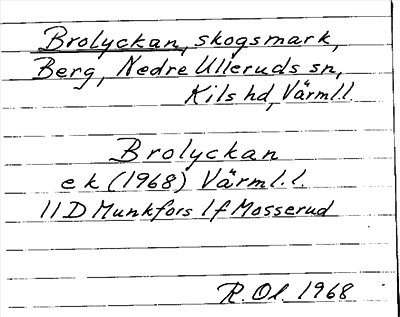 Brolyckan, skogsmark,
Berg, Nedre Ulleruds sn,
Kils hd, Värml.l.
Brolyckan
ek (1968) Värml.l.
11D Munkfors 1f Mosserud
R.Ol. 1968